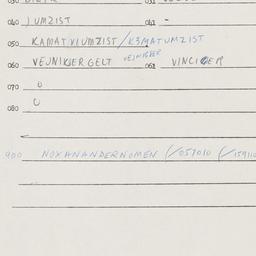 040 JUMZIST 041 -
050 KAMATVIUMZIST/K3MATUMZIST
060 VEJNIKERGELT VEJNIKER 061 VINCIGER
070 0
080 0
900 NOXANANDERNOMEN (/059010 (/159110